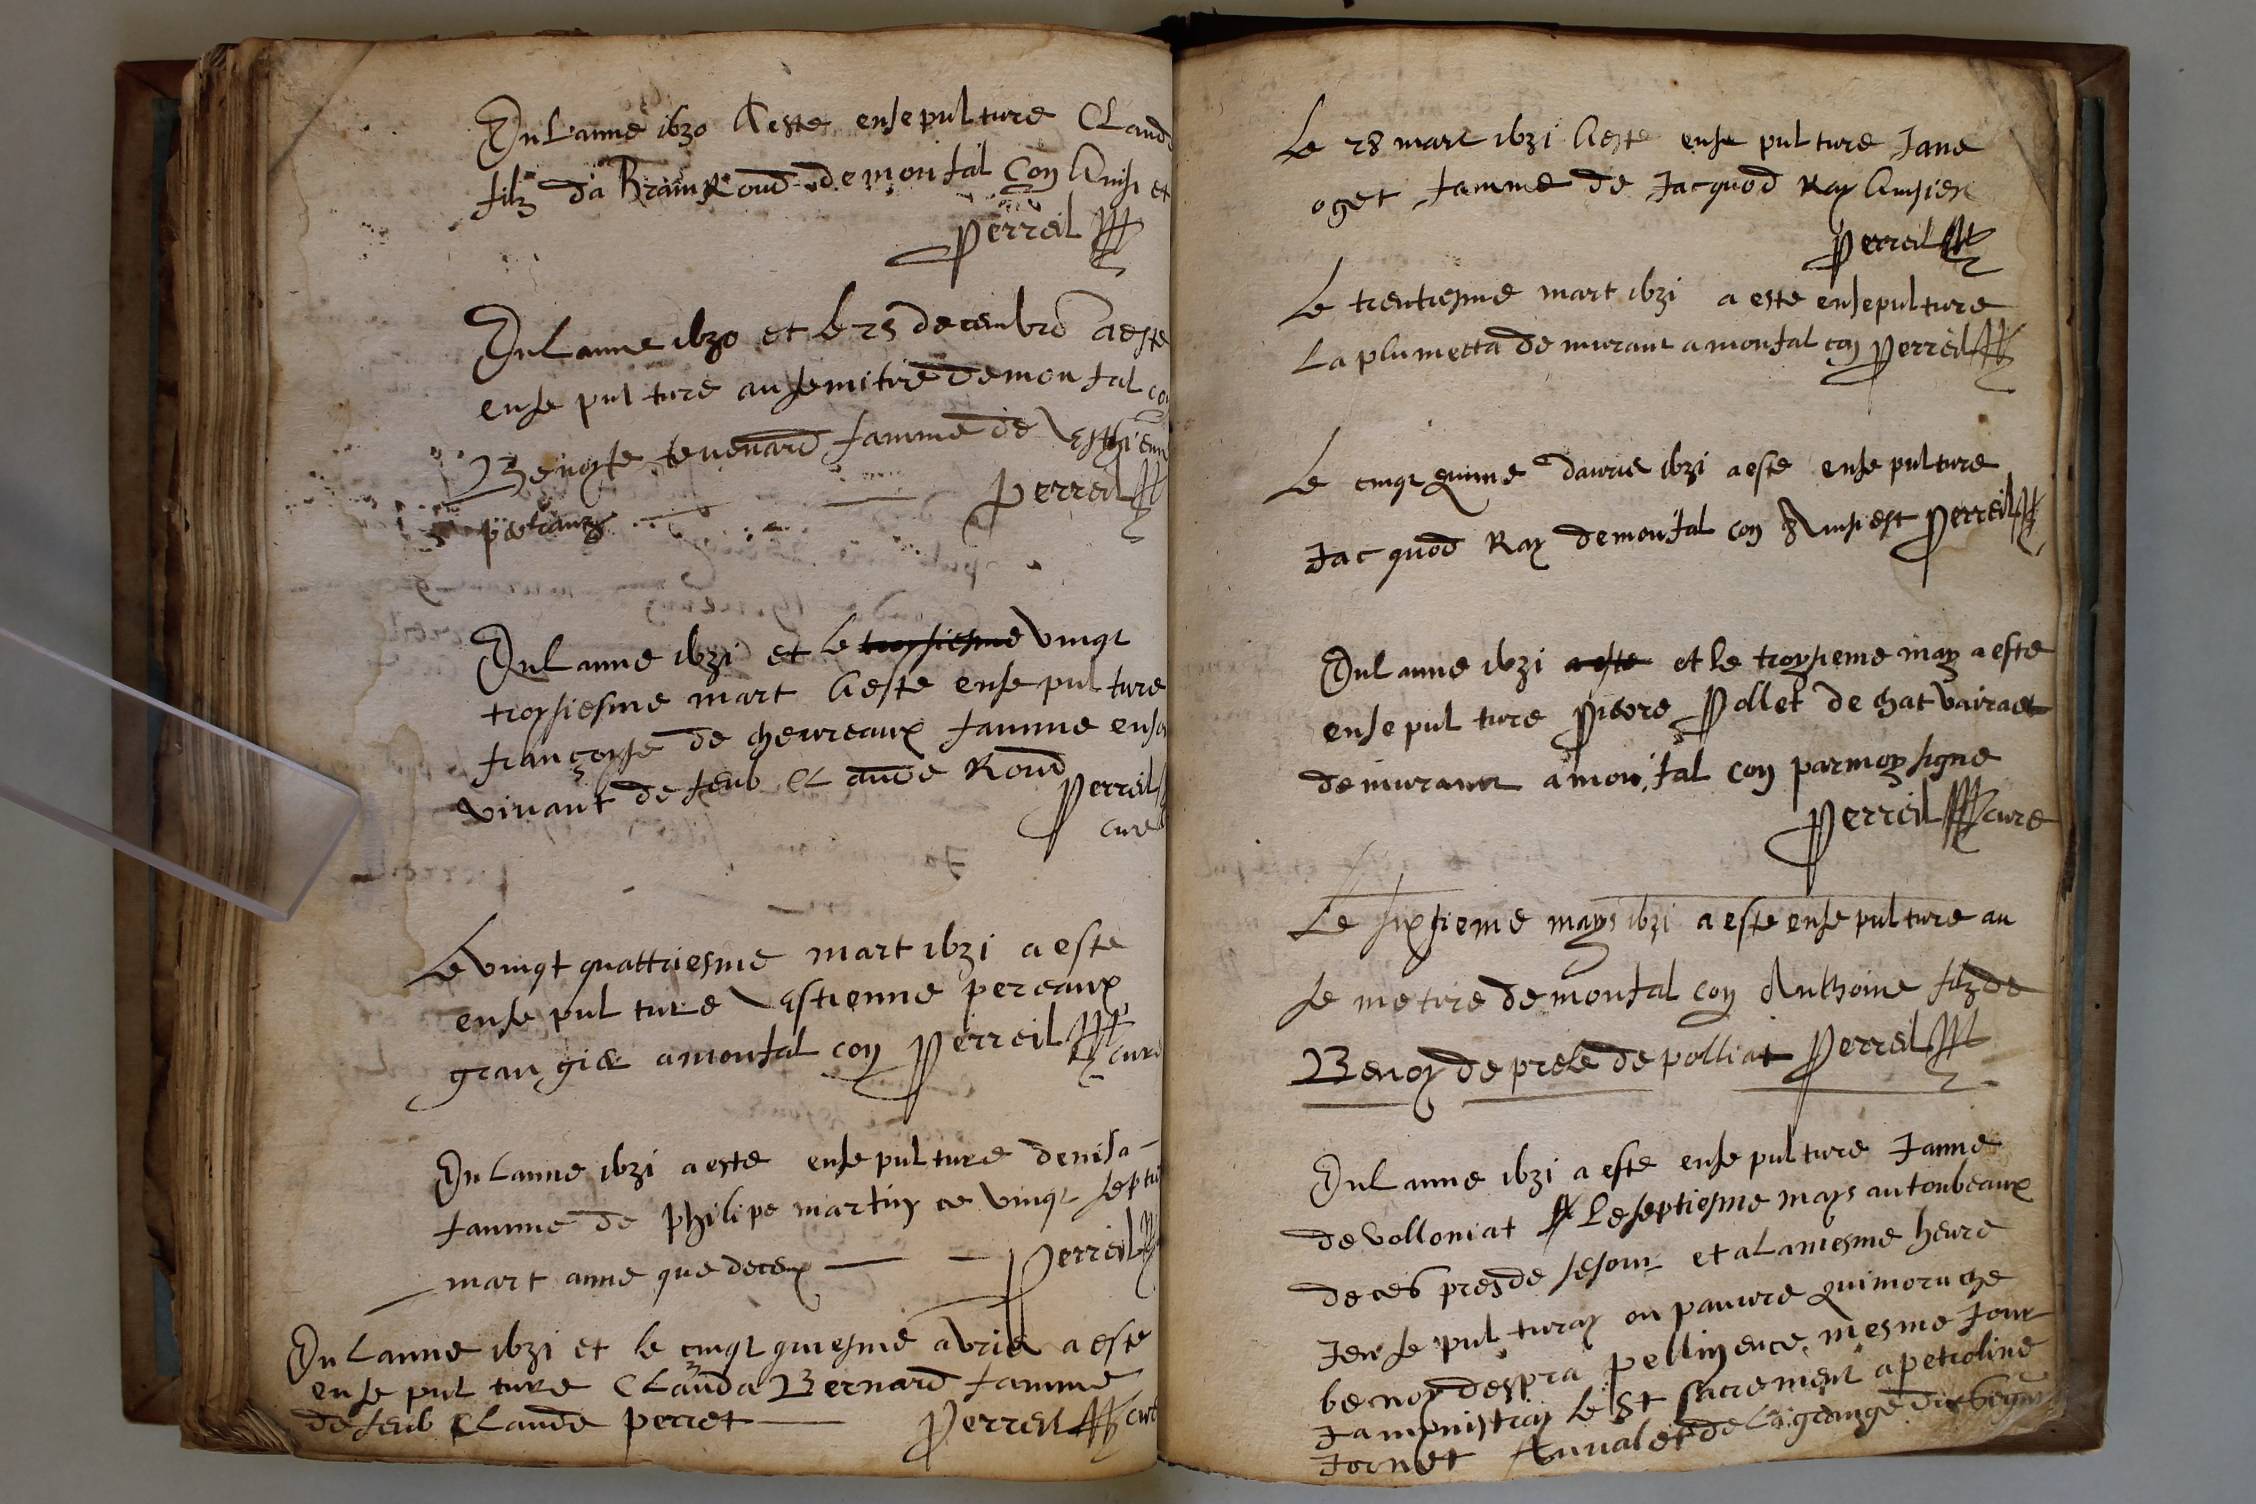 En Lanne 1630 A este ensepulture Claud
filz da Bram Roud de montal Con Ainsi et
Perreil
En Lanne 1630 et le 25 decembre a este
ensepulture au semitire de montal con
Benoyte tevenard famme de Esthienn
Perreil
En Lanne 1631 et le troysiesme vingt
troysiesme mart A este ensepulture
françoyse de chevreaux famme enso
vivant de feub Claude Roud
Perreil
cure
Le vingt quattriesme mart 1631 a este
ensepulture Estienne pereaux
grangier a montal con Perreil
cure
En Lanne 1631 a este ensepulture denisa
famme de philipe martin ce vingt septie
mart anne que deceux Perreil
En Lanne 1631 et le cinqt quiesme avriel a este
ensepulture Clauda Bernard famme
de feub Claude perret Perreil cure
Le 28 mart 1631 A este ensepulture Jane
oget famme de Jacquod Ray
Perreil
Le trentiesme mart 1631 a este ensepulture
La plumetta demurant a montal con Perreil
Le cinqt quime davriel 1631 a este ensepulture
Jacquod Ray de montal con Ainsi est Perreil
En Lanne 1631 a este et le troysieme may a este
ensepulture pierre Pollet de
demurant a montal con par moy signe
Perreil cure
Le sixsieme mays 1631 a este ensepulture au
semetire de montal con Anthoine filz de
Benoy de prele de polliat Perreil
En Lanne 1631 a este ensepulture Janne
de volloniat Le septiesme mays au tonbeaux
de ces pres de sesour et a La mesme heure
Jensepulturay on pauvre qui moru che
benoy despra pellin ence mesme Jour
Jaministray le St sacrement a petroline
Jornet de La grange